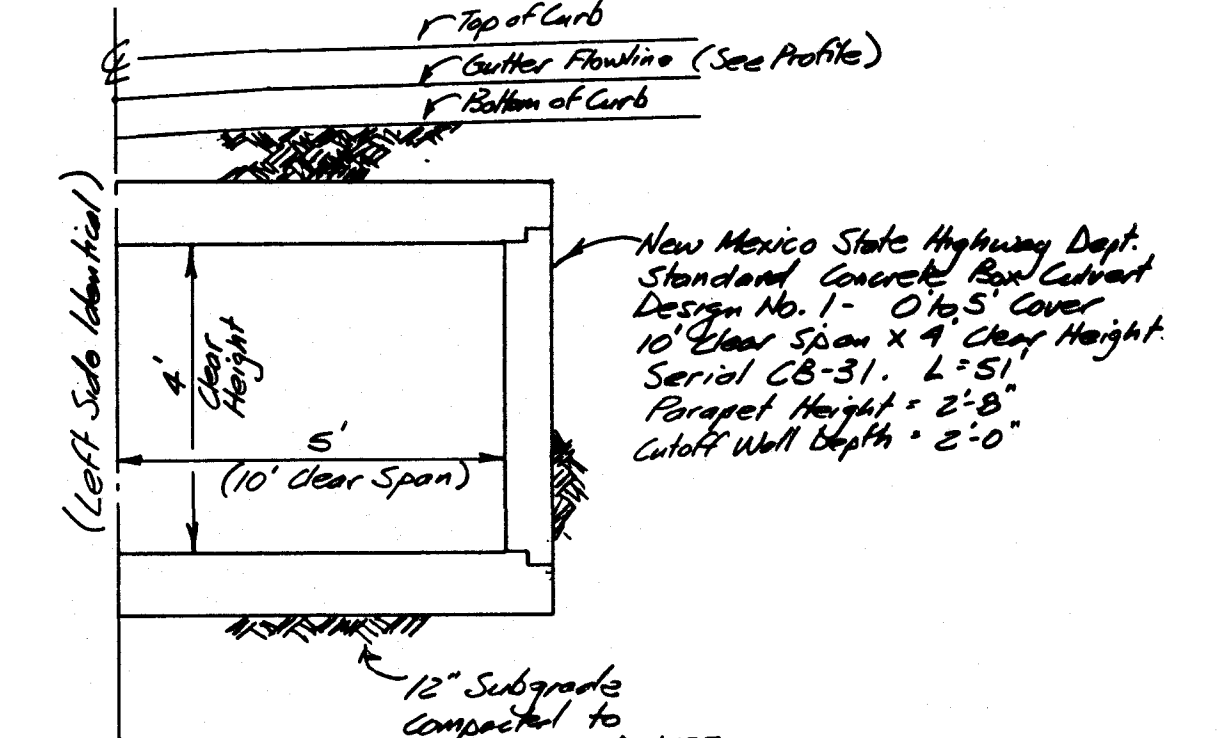 Top of Curb
℄
Gutter Flowline (See Profile)
Bottom of Curb
(Left Side Identical)
4'
Clear
Height
5'
(10' Clear Span)
New Mexico State Highway Dept.
Standard Concrete Box Culvert
Design No. 1 - 0' to 5' Cover
10' Clear Span x 4' Clear Height.
Serial CB-31. L = 51'
Parapet Height = 2'-8"
Cutoff Wall Depth = 2'-0"
12" Subgrade
Compacted to